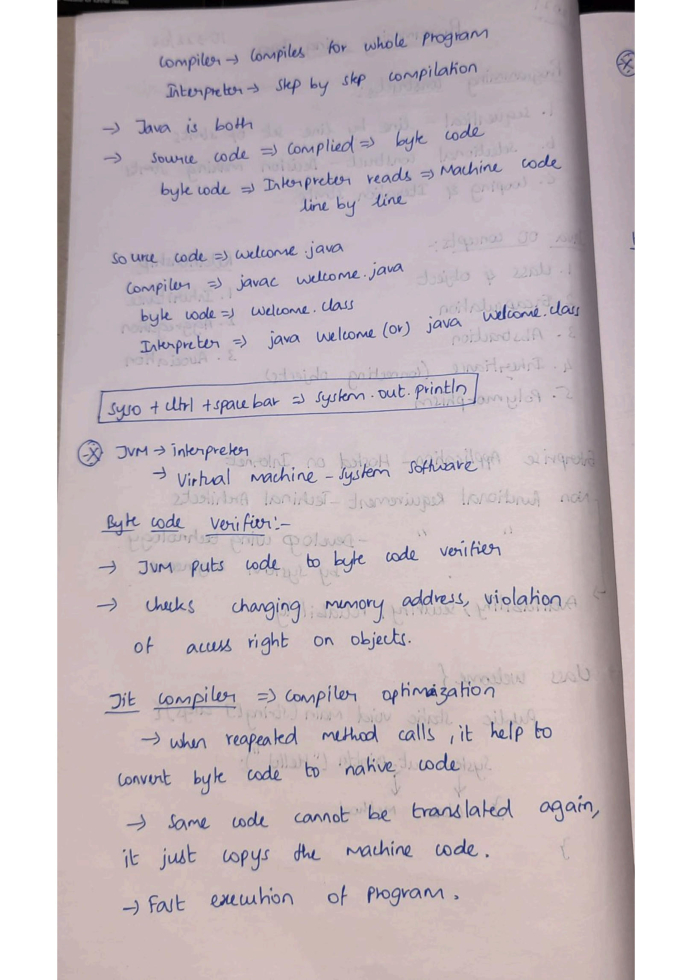 Compiler → Compiles for whole Program
Interpreter → step by step compilation
→ Java is both
→ source code => complied => byte code
byte code => Interpreter reads => Machine code
line by line
source code => welcome.java
compiler => javac welcome.java
byte code => welcome.class
Interpreter => java welcome (or) java welcome.class
syso + ctrl + space bar => system.out.println
JVM → interpreter
→ Virtual Machine - System Software
Byte code verifier:-
→ JVM puts code to byte code verifier
→ checks changing memory address, violation
of access right on objects.
Jit compiler => compiler optimization
→ when reapeated method calls, it help to
convert byte code to native code
→ same code cannot be translated again,
it just copys the machine code.
→ Fast execution of Program.